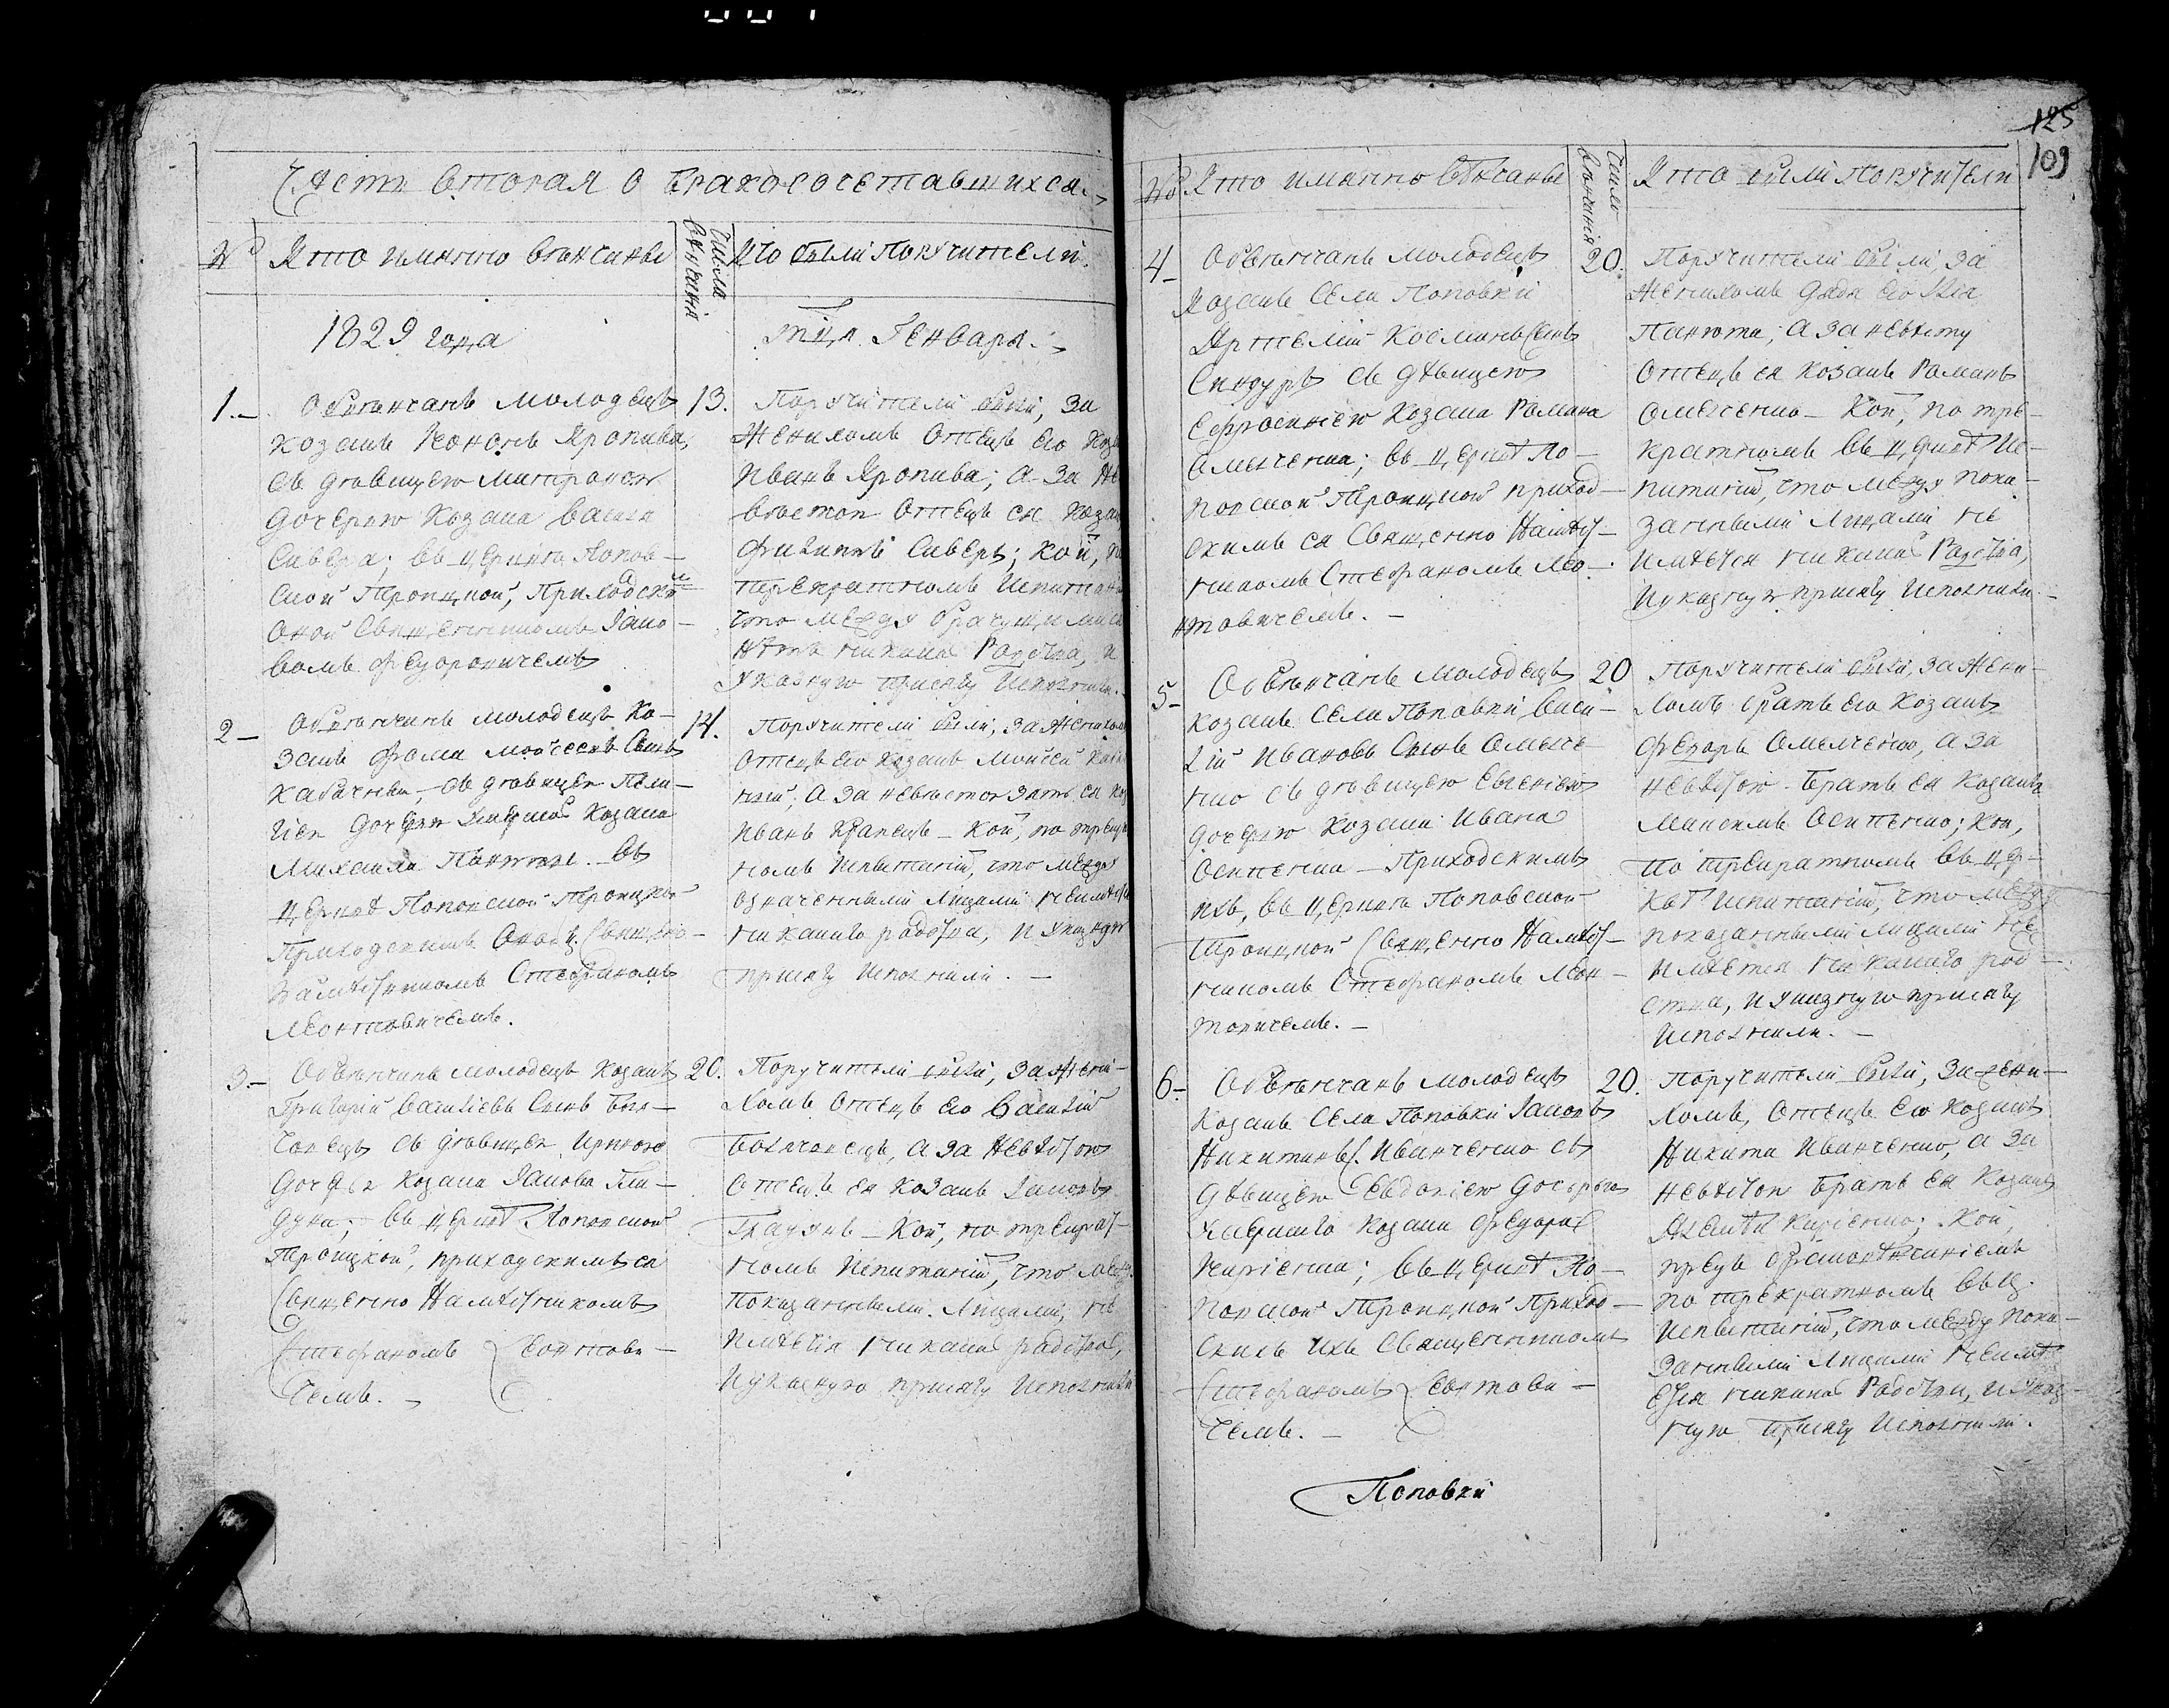 Часть вторая о бракосочетавшихся.
№
Кто имянно венчаны
Числа венчанія
Кто были поручители.
1829 года
м̃ца Генваря.
1.
Обвенчанъ молодецъ
козакъ Кононъ Кропива,
съ девицею
дочерию козака
Сивера; въ церкве Попов-
ской Троицкой, Приходски
оной Священникомъ Іако-
вомъ Федоровичемъ
13.
Поручители были, за
Женихомъ Отецъ его
Иванъ Кропива; а за
вестою Отецъ ея
Филиппъ Сиверъ; кои,
троекратномъ
что между брачущимися
нетъ никакого Родства, и
указную присягу исполнили.
2
Обвенчанъ молодецъ Ко-
закъ Фома Моисеевъ Сынъ
съ девицею Пела-
гіею дочерию умершаго Козака
Михаила Панюты въ
церкве Поповской Троицкой
Приходскимъ оной
Намѣстникомъ Стефаномъ
Леонтовичемъ.
14.
Поручители были, за Женихом
отецъ его козакъ Моисей
а за невестою зять ея
Иванъ Кравецъ - кои, по
номъ испытаніи, что между
означенными лицами не имѣется
никакого родства, и указную
присягу исполнили.
3.
Обвенчанъ молодецъ козакъ
Григорій Василіевъ Сынъ
съ девицею Ириною
дочерию козака Іакова Гла-
дуна; въ церкве Поповской
Троицкой, приходскимъ ея
Священно Намѣстникомъ
Стефаномъ Леонтови-
чемъ.
20.
Поручители были, за жени-
хомъ отецъ его Василій
а за невѣстою
отецъ ея козакъ Іаковъ
Гладунъ - кои, по трекрат-
номъ испытаніи, что между
показанными лицами, не
имѣется никакого родства,
и указную присягу исполнили
125
109
№
Кто имянно вѣнчаны
Число венчанія
Кто были поручители
4
Обвенчанъ молодецъ
козакъ села Поповки
Артемій Косминъ Сынъ
съ дѣвицею
Ефросиніею козака Романа
Омелченка; въ церквѣ По-
повской Троицкой приход-
скимъ ея Священно Намѣст-
никомъ Стефаномъ Лео-
нтовичемъ.
20.
Поручители были, за
Женихомъ дядя его Илія
Панюта, а за невѣсту
отецъ ея козакъ Романъ
Омелченко - кои, по тре-
кратномъ въ церквѣ ис-
питаніи, что между пока-
занными лицами не
имѣется никакого Родства,
и указную присягу исполнили.
5
Обвѣнчанъ молодецъ
козакъ села Поповки Васи-
лій Ивановъ Сынъ Омелче-
нко съ девицею Евгеніею
дочерию козака Ивана
Осипенка - Приходскимъ
ихъ, въ церкве Поповской
Троицкой Священно Намѣст-
никомъ Стефаномъ Леон-
товичемъ.
20
Поручители были, за жени-
хомъ братъ его козакъ
Федоръ Омелченко, а за
невѣстою братъ ея козакъ
Максимъ Осипенко; кои,
по трекратномъ въ цер-
квѣ испитаніи, что между
показанными лицами не
имѣется никакого род-
ства, и указную присягу
исполнили.
6
Обвенчанъ молодецъ
козакъ села Поповки Іаковъ
Никитинъ С. Иванченко съ
дѣвицею Евдокіею дочерью
умершаго козака Федора
Киріенка; въ церквѣ По-
повской Троицкой Приход-
скимъ ихъ Священникомъ
Стефаномъ Леонтови-
чемъ.
20.
Поручители были, за жени-
хомъ, отецъ его козакъ
Никита Иванченко, а за
невѣстою братъ ея козакъ
Киріенко; кои,
предъ браковѣнчаніемъ
по трекратномъ въ ц.
испытаніи, что между пока-
занными лицами не имѣ-
ется никакого Родства, и указ-
ную присягу исполнили.
Поповки